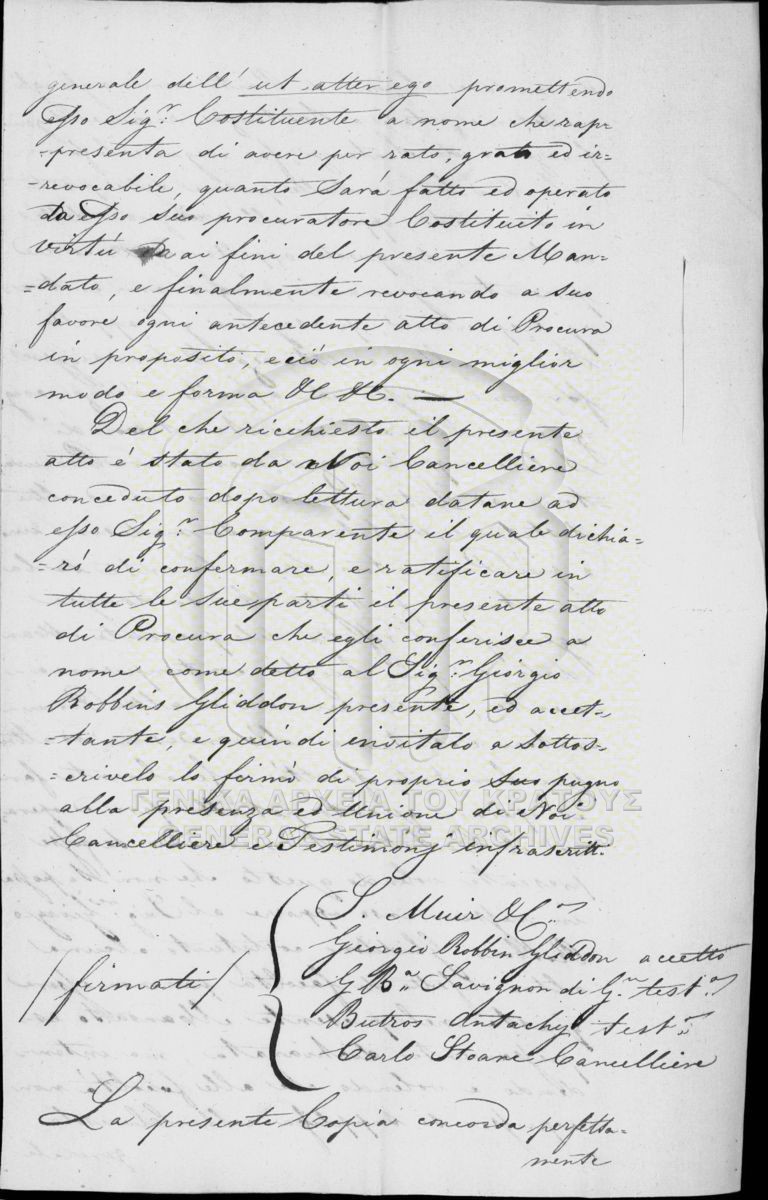 generale dell' ut alter ego promettendo
esso Sig.r Costituente a nome che rap=
=presenta di avere per rato, grato ed ir=
=revocabile, quanto sará fatto ed operato
da esso suo procuratore Costituito in
virtú ai fini del presente Man=
=dato, e finalmente revocando a suo
favore ogni antecedente atto di Procura
in proposito, e ció in ogni miglior
modo e forma &C &C. —
Del che richiesto il presente
atto é stato da Noi Cancelliere
conceduto dopo lettura datane ad
esso Sig.r Comparente il quale dichia=
=ró di confermare, e ratificare in
tutte le sue parti il presente atto
di Procura che egli conferisce a
nome come detto al Sig.r Giorgio
Robbins Gliddon presente, ed accet=
=tante, e quindi invitalo a sottos=
=crivelo lo firmò di proprio suo pugno
alla presenza ed Unione di Noi
Cancelliere e Testimonj infrascritti.
ΓΕΝΙΚΑ ΑΡΧΕΙΑ ΤΟΥ ΚΡΑΤΟΥΣ
GENERAL STATE ARCHIVES
/firmati/
S. Muir &C.
Giorgio Robbin Gliddon accetto
G Ba. Savignon di G. test.
Butros Antachy test.
Carlo Stoare Cancelliere
La presente Copia concorda perfetta=
mente